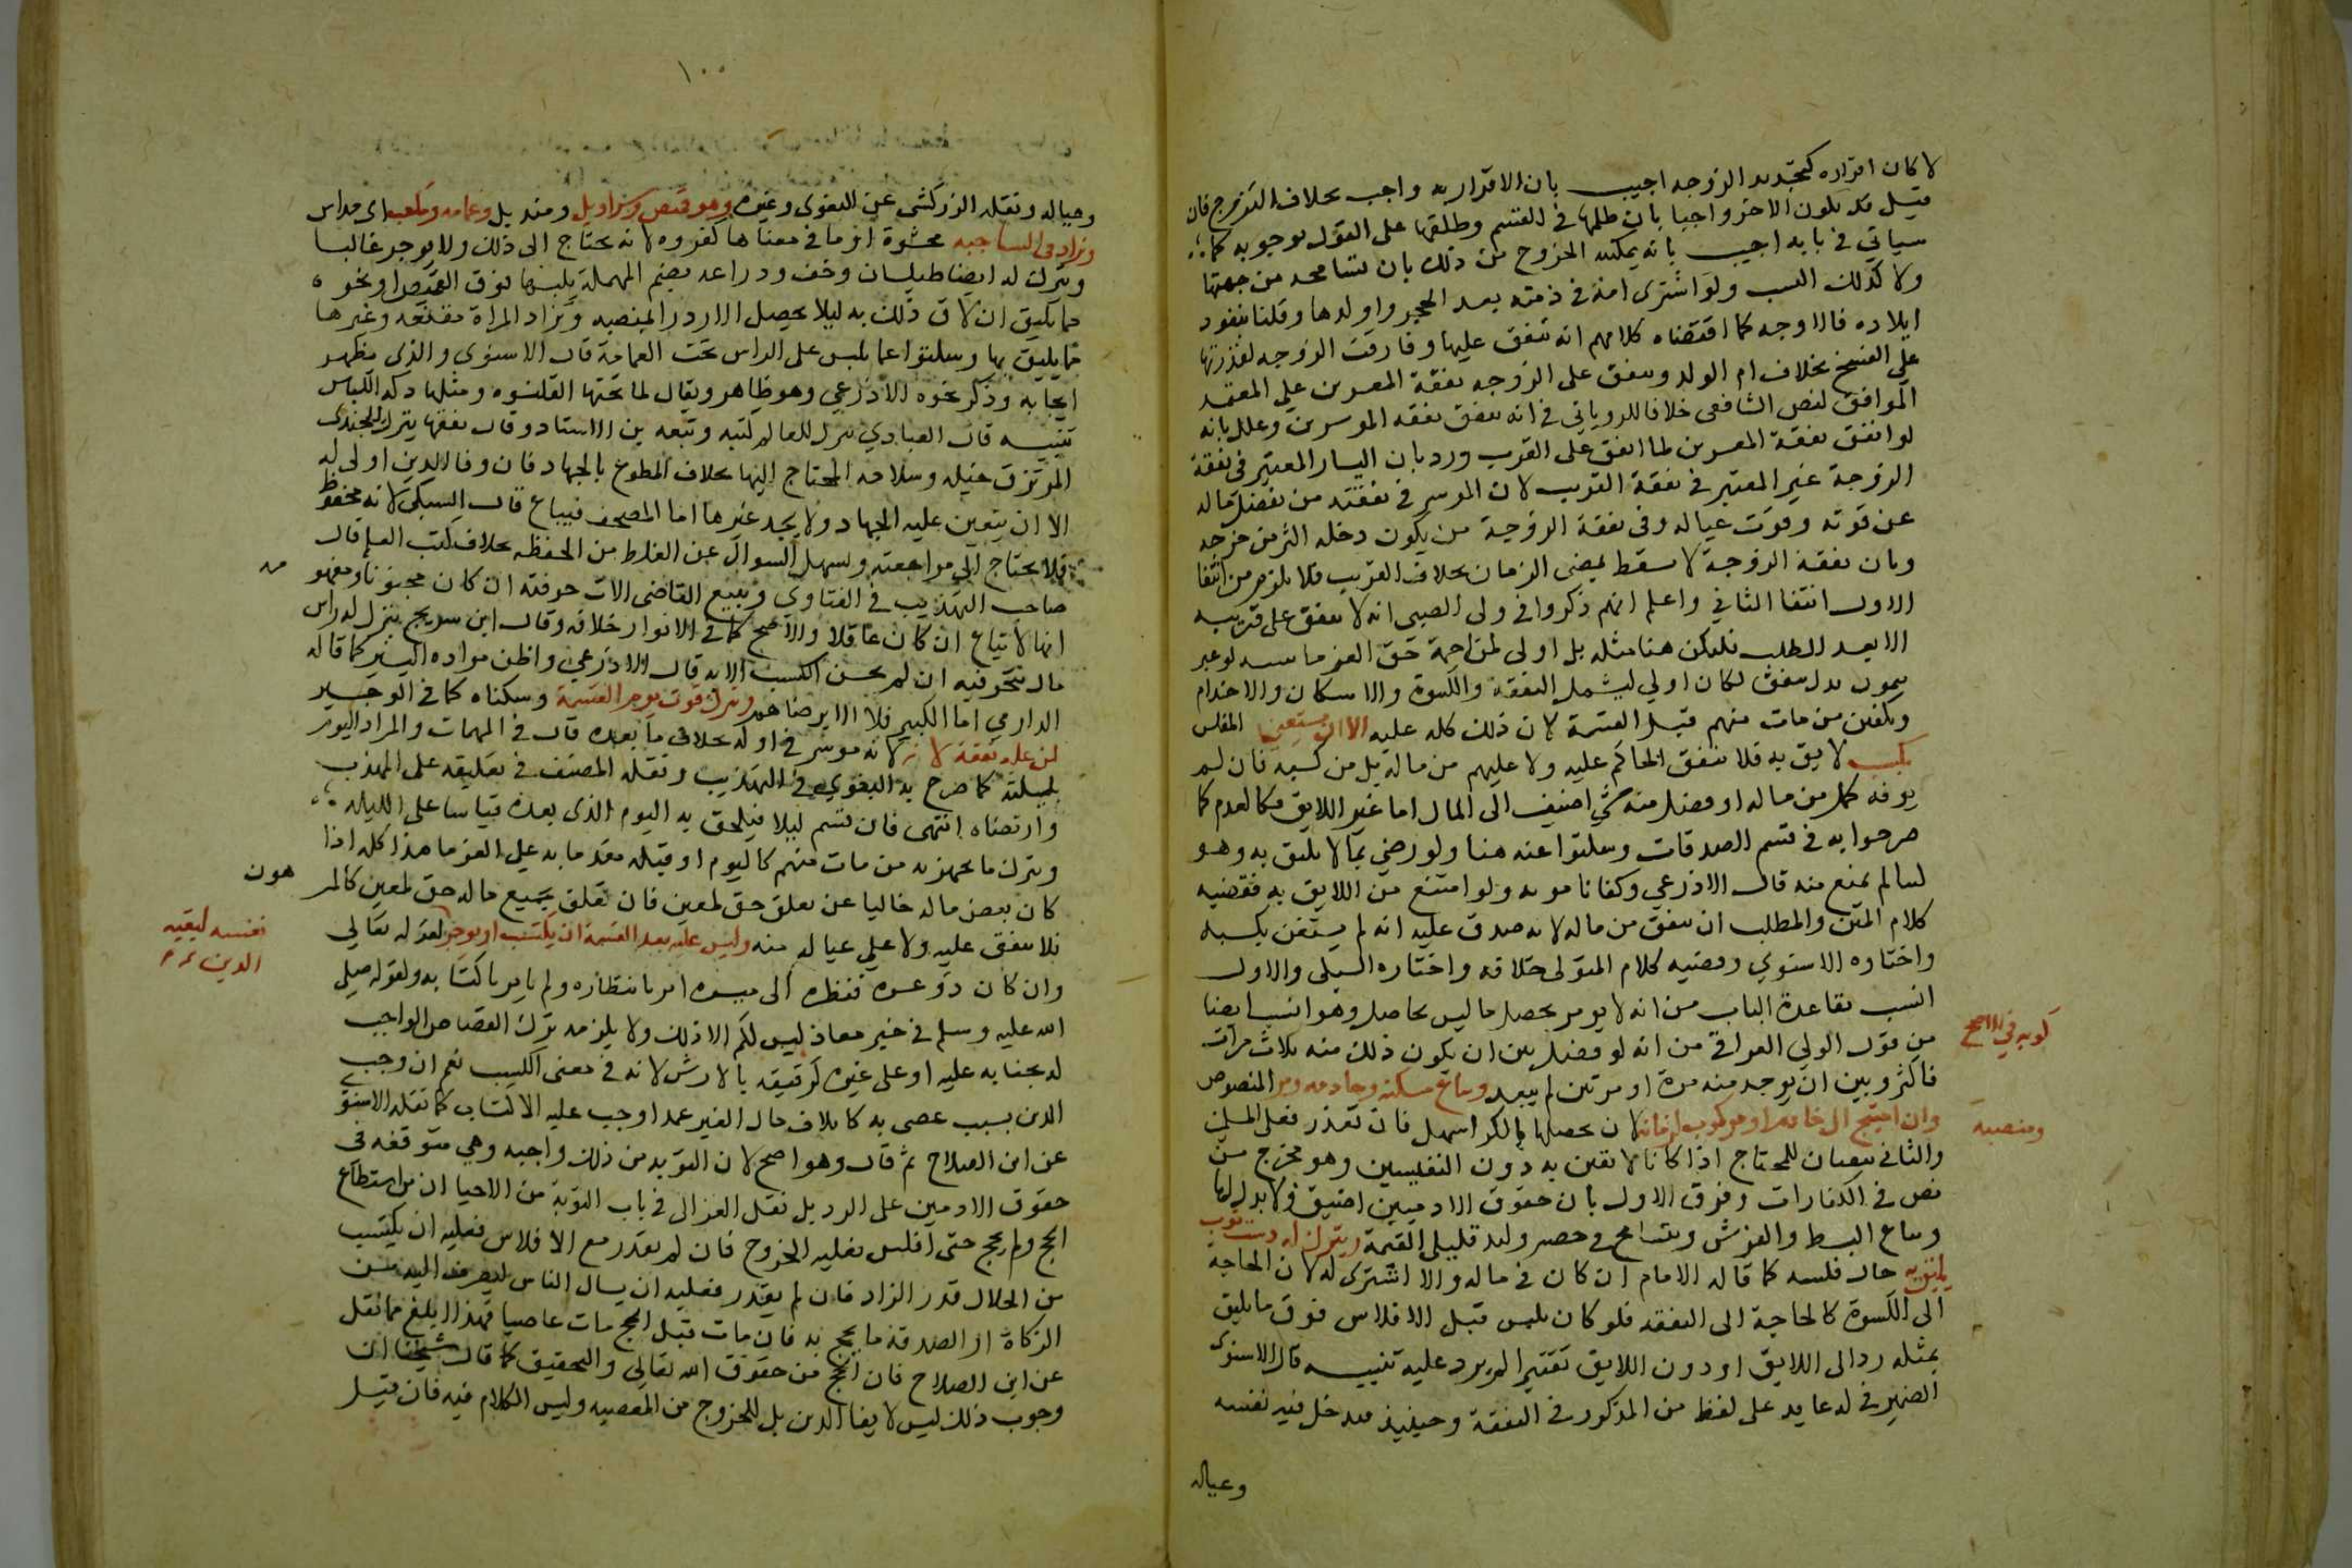 لا كان اقراره كتجديد الزوجه اجيب بان الاقرار به واجب بخلاف التزوج فان
قيل قد يكون الاخر واجبا بان ظلمها في القسم وطلقها على القول بوجوبه كما
سياتي في بابه اجيب بانه يمكنه الخروج من ذلك بان تسامحه من جهتها
ولا كذلك النسب ولو اشترى امة في ذمته بعد الحجر واولدها وقلنا بنفود
ايلاده فالاوجه كما اقتضاه كلامهم انه ينفق عليها وفارقت الزوجه لقدرتها
على الفسخ بخلاف ام الولد وينفق على الزوجه نفقة المعسرين علي المعتمد
الموافق لنص الشافعي خلافا للروياني في انه ينفق نفقه الموسرين وعلل بانه
لو انفق نفقة المعسرين لما انفق على القريب ورد بان اليسار المعتبر في نفقة
الزوجة غير المعتبر في نفقة القريب لان الموسر في نفقته من يفضل ماله
عن قوته وقوت عياله وفي نفقة الزوجية من يكون دخله اكثر من خرجه
وبان نفقة الزوجة لا تسقط بمضي الزمان بخلاف القريب فلا يلزم من انتفا
الاول انتفا الثاني واعلم انهم ذكروا في ولي الصبي انه لا ينفق على قريبه
الا بعد الطلب فليكن هنا مثله بل اولى لمزاحمة حق الغرما له لو عبر
بيمون بدل ينفق لكان اولي ليشمل النفقة والكسوة والاسكان والاخدام
وتكفين من مات منهم قبل القسمة لان ذلك كله عليه الا ان يستغني المفلس
بكسب لايق به فلا ينفق الحاكم عليه ولا عليهم من ماله بل من كسبه فان لم
يوفه كمل من ماله او فضل منه شي اضيف الى المال اما غير اللايق فكالعدم كما
صرحوا به في قسم الصدقات وسكتوا عنه هنا ولو رضي بما لا يليق به وهو
مباح لم يمنع منه قال الاذرعي وكفانا موته ولو امتنع من اللايق به فقضيه
كلام المتن والمطلب ان ينفق من ماله لانه صدق عليه انه لم يستغن بكسبه
واختاره الاسنوي وقضيه كلام المتولي خلافه واختاره السبكي والاول
انسب بقاعدة الباب من انه لا يومر بتحصيل ما ليس بحاصل وهو انسب ايضا
من قول الولي العراقي من انه لو فضل بين ان يكون ذلك منه ثلاث مرات
فاكثر وبين ان يوجد منه مرة او مرتين لم يبعد ويباع مسكنه وخادمه ومر المنصوص
وان احتج الى خادم او مركوب لزمانة لان تحصيلها بالكرا اسهل فان تعذر فعلى المسلمين
والثاني يبقيان للمحتاج اذا كانا لايقين به دون النفيسين وهو مخرج من
نص في الكفارات وفرق الاول بان حقوق الادميين اضيق ولا بدل لها
ويباع البسط والفرش ويتسامح في حصير ولبد قليلي القيمة ويترك له دست ثوب
يليق به حال فلسه كما قاله الامام ان كان في ماله والا اشترى له لان الحاجة
الى الكسوة كالحاجة الى النفقه فلو كان يلبس قبل الافلاس فوق ما يليق
بمثله رد الى اللايق او دون اللايق تقتيرا لم يرد عليه تنبيه قال الاسنوى
الضمير في له عايد على لفظ من المذكور في النفقة وحينيذ فيدخل فيه نفسه
وعياله
كوبه في الاصح
ومنصبه
١٠٠
وعياله ونقله الزركشي عن البغوى وغيره وهو قميص وسراويل ومنديل وعمامه ومكعب اي مداس
ويزاد في الشتا جبه محشوة او ما في معناها كفروه لانه يحتاج الى ذلك ولا يوجر غالبا
ويترك له ايضا طيلسان وخف ودراعه بضم المهملة يلبسها فوق القميص او نحوه
مما يليق ان لاق ذلك به ليلا يحصل الازدرا بمنصبه وتزاد المراة مقنعه وغيرها
مما يليق بها وسكتوا عما يلبس على الراس تحت العمامة قال الاسنوى والذي يظهر
ايجابه وذكر نحوه الاذرعي وهو ظاهر ويقال لما تحتها القلنسوه ومثلها تكه اللباس
تنبيه قال العبادي يترك للعالم كتبه وتبعه بن الاستاد وقال تفقها يترك للجندى
المرتزق خيله وسلاحه المحتاج اليها بخلاف المطوع بالجهاد فان وفا الدين اولى له
الا ان يتعين عليه الجهاد ولا يجد غيرها اما المصحف فيباع قال السبكي لانه محفوظ
فلا يحتاج الي مراجعته ويسهل السوال عن الغلط من الحفظه بخلاف كتب العلم قال
صاحب التهذيب في الفتاوي ويبيع القاضي الات حرفته ان كان مجنونا ومفهو
مه
انها لا تباع ان كان عاقلا والاصح كما في الانوار خلافه وقال ابن سريج يترك له راس
مال يتجر فيه ان لم يحسن الكسب الا به قال الاذرعي واظن مراده اليسير كما قاله
الدارمي اما الكبير فلا الا برضاهم ويترك قوت يوم القسمة وسكناه كما في الوجيز
لمن عليه نفقة لانه لانه موسر في اوله بخلاف ما بعده قال في المهمات والمراد اليوم
بليلته كما صرح به البغوي في التهذيب ونقله المصنف في تعليقه على المهذب
وارتضاه انتهى فان قسم ليلا فيلحق به اليوم الذى بعده قياسا على الليله
ويترك ما يجهز به من مات منهم كاليوم او قبله مقدما به على الغرما هذا كله اذا
كان بعض ماله خاليا عن تعلق حق لمعين فان تعلق بجميع ماله حق لمعين كالمر
هون
فلا ينفق عليه ولا علي عياله منه وليس عليه بعد القسمة ان يكتسب او يوجر لقوله تعالى
نفسه لبقيه
الدين
وان كان ذو عسرة فنظرة الى ميسرة امر بانتظاره ولم يامر باكتسابه ولقوله صلى
الله عليه وسلم في خبر معاذ ليس لكم الا ذلك ولا يلزمه ترك القصاص الواجب
له بجنايه عليه او على غيره كرقيقه بالارش لانه في معنى الكسب نعم ان وجب
الدين بسبب عصى به كاتلاف مال الغير عمدا وجب عليه الاكتساب كما نقله الاسنو
عن ابن الصلاح ثم قال وهو اصح لان التوبه من ذلك واجبه وهي متوقفه في
حقوق الادميين على الرد بل نقل الغزالي في باب التوبة من الاحيا ان من استطاع
الحج ولم يحج حتى افلس فعليه الخروج فان لم يقدر مع الافلاس فعليه ان يكتسب
من الحلال قدر الزاد فان لم يقدر فعليه ان يسال الناس ليصرف اليه من
الزكاة او الصدقة ما يحج به فان مات قبل الحج مات عاصيا فهذا ابلغ مما نقل
عن ابن الصلاح فان الحج من حقوق الله تعالى والتحقيق كما قال شيخنا ان
وجوب ذلك ليس لايفا الدين بل للخروج من المعصيه وليس الكلام فيه فان قيل